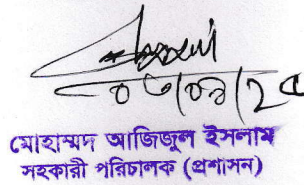 ০৩/০৯/২৫
মোহাম্মদ আজিজুল ইসলাম
সহকারী পরিচালক (প্রশাসন)